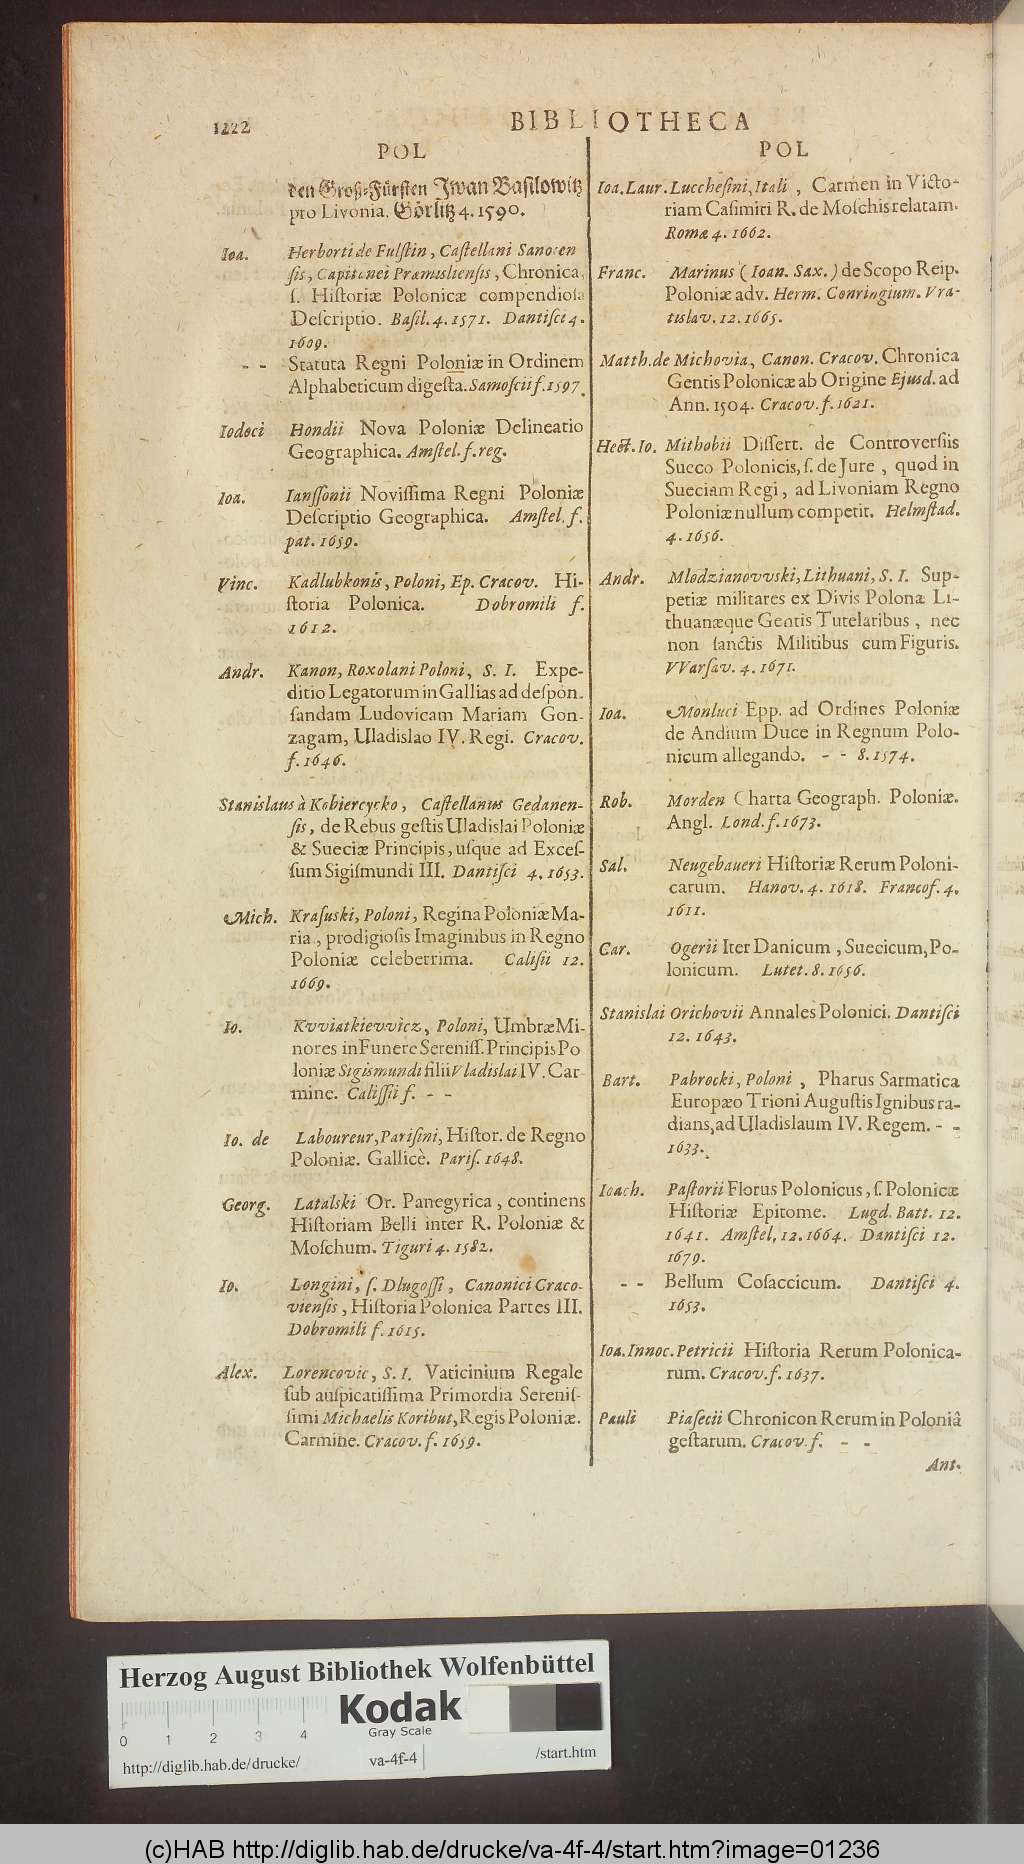 1222
BIBLIOTHECA
POL
den Groß-Fürsten Jwan Basilowitz
pro Livonia. Görlitz 4. 1590.
Ioa. Herborti de Fulstin, Castellani Sanocen
sis, Capitanei Præmisliensis, Chronica,
s. Historiæ Polonicæ compendiosa
Descriptio. Basil. 4. 1571. Dantisci 4.
1609.
- - Statuta Regni Poloniæ in Ordinem
Alphabeticum digesta. Samoscii f. 1597.
Iodoci Hondii Nova Poloniæ Delineatio
Geographica. Amstel. f. reg.
Ioa. Ianssonii Novissima Regni Poloniæ
Descriptio Geographica. Amstel. f.
pat. 1659.
Vinc. Kadlubkonis, Poloni, Ep. Cracov. Hi-
storia Polonica. Dobromili f.
1612.
Andr. Kanon, Roxolani Poloni, S. I. Expe-
ditio Legatorum in Gallias ad despon-
sandam Ludovicam Mariam Gon-
zagam, Uladislao IV. Regi. Cracov.
f. 1646.
Stanislaus à Kobiercycko, Castellanus Gedanen-
sis, de Rebus gestis Uladislai Poloniæ
& Sueciæ Principis, usque ad Exces-
sum Sigismundi III. Dantisci 4. 1653.
Mich. Krasuski, Poloni, Regina Poloniæ Ma-
ria, prodigiosis Imaginibus in Regno
Poloniæ celeberrima. Calisii 12.
1669.
Io. Kvviatkievvicz, Poloni, Umbræ Mi-
nores in Funere Sereniss. Principis Po
loniæ Sigismundi filii Vladislai IV. Car-
mine. Calissii f. - -
Io. de Laboureur, Parisini, Histor. de Regno
Poloniæ. Gallicè. Paris. 1648.
Georg. Latalski Or. Panegyrica, continens
Historiam Belli inter R. Poloniæ &
Moschum. Tiguri 4. 1582.
Io. Longini, s. Dlugossi, Canonici Craco-
viensis, Historia Polonica Partes III.
Dobromili f. 1615.
Alex. Lorencovic, S. I. Vaticinium Regale
sub auspicatissima Primordia Serenis-
simi Michaelis Koribut, Regis Poloniæ.
Carmine. Cracov. f. 1659.
POL
Ioa. Laur. Lucchesini, Itali, Carmen in Victo-
riam Casimiri R. de Moschis relatam.
Romæ 4. 1662.
Franc. Marinus (Ioan. Sax.) de Scopo Reip.
Poloniæ adv. Herm. Conringium. Vra-
tislav. 12. 1665.
Matth. de Michovia, Canon. Cracov. Chronica
Gentis Polonicæ ab Origine Ejusd. ad
Ann. 1504. Cracov. f. 1621.
Hect. Io. Mithobii Dissert. de Controversiis
Sueco Polonicis, s. de Jure, quod in
Sueciam Regi, ad Livoniam Regno
Poloniæ nullum competit. Helmstad.
4. 1656.
Andr. Mlodzianovvski, Lithuani, S. I. Sup-
petiæ militares ex Divis Polonæ Li-
thuanæque Gentis Tutelaribus, nec
non sanctis Militibus cum Figuris.
VVarsav. 4. 1671.
Ioa. Monluci Epp. ad Ordines Poloniæ
de Andium Duce in Regnum Polo-
nicum allegando. - - 8. 1574.
Rob. Morden Charta Geograph. Poloniæ.
Angl. Lond. f. 1673.
Sal. Neugebaueri Historiæ Rerum Poloni-
carum. Hanov. 4. 1618. Francof. 4.
1611.
Car. Ogerii Iter Danicum, Suecicum, Po-
lonicum. Lutet. 8. 1656.
Stanislai Orichovii Annales Polonici. Dantisci
12. 1643.
Bart. Pabrocki, Poloni, Pharus Sarmatica
Europæo Trioni Augustis Ignibus ra-
dians, ad Uladislaum IV. Regem. - -
1633.
Ioach. Pastorii Florus Polonicus, s. Polonicæ
Historiæ Epitome. Lugd. Batt. 12.
1641. Amstel, 12. 1664. Dantisci 12.
1679.
- - Bellum Cosaccicum. Dantisci 4.
1653.
Ioa. Innoc. Petricii Historia Rerum Polonica-
rum. Cracov. f. 1637.
Pauli Piasecii Chronicon Rerum in Poloniâ
gestarum. Cracov. f. - -
Ant.
Herzog August Bibliothek Wolfenbüttel
Kodak
Gray Scale
0 1 2 3 4
http://diglib.hab.de/drucke/ va-4f-4 /start.htm
(c)HAB http://diglib.hab.de/drucke/va-4f-4/start.htm?image=01236